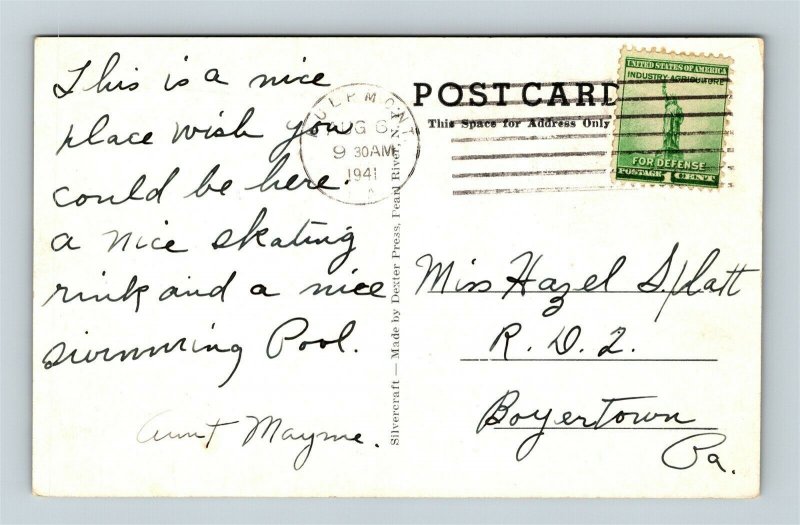 This is a nice
place wish you
could be here.
a nice skating
rink and a nice
swimming Pool.
Aunt Mayme.
Silvercraft — Made by Dexter Press, Pearl River, N.Y.
AUG 6
9 30 AM
1941
POST CARD
This Space for Address Only
UNITED STATES OF AMERICA
INDUSTRY AGRICULTURE
FOR DEFENSE
POSTAGE 1 CENT
Miss Hazel S. Platt
R. D. 2.
Boyertown
Pa.